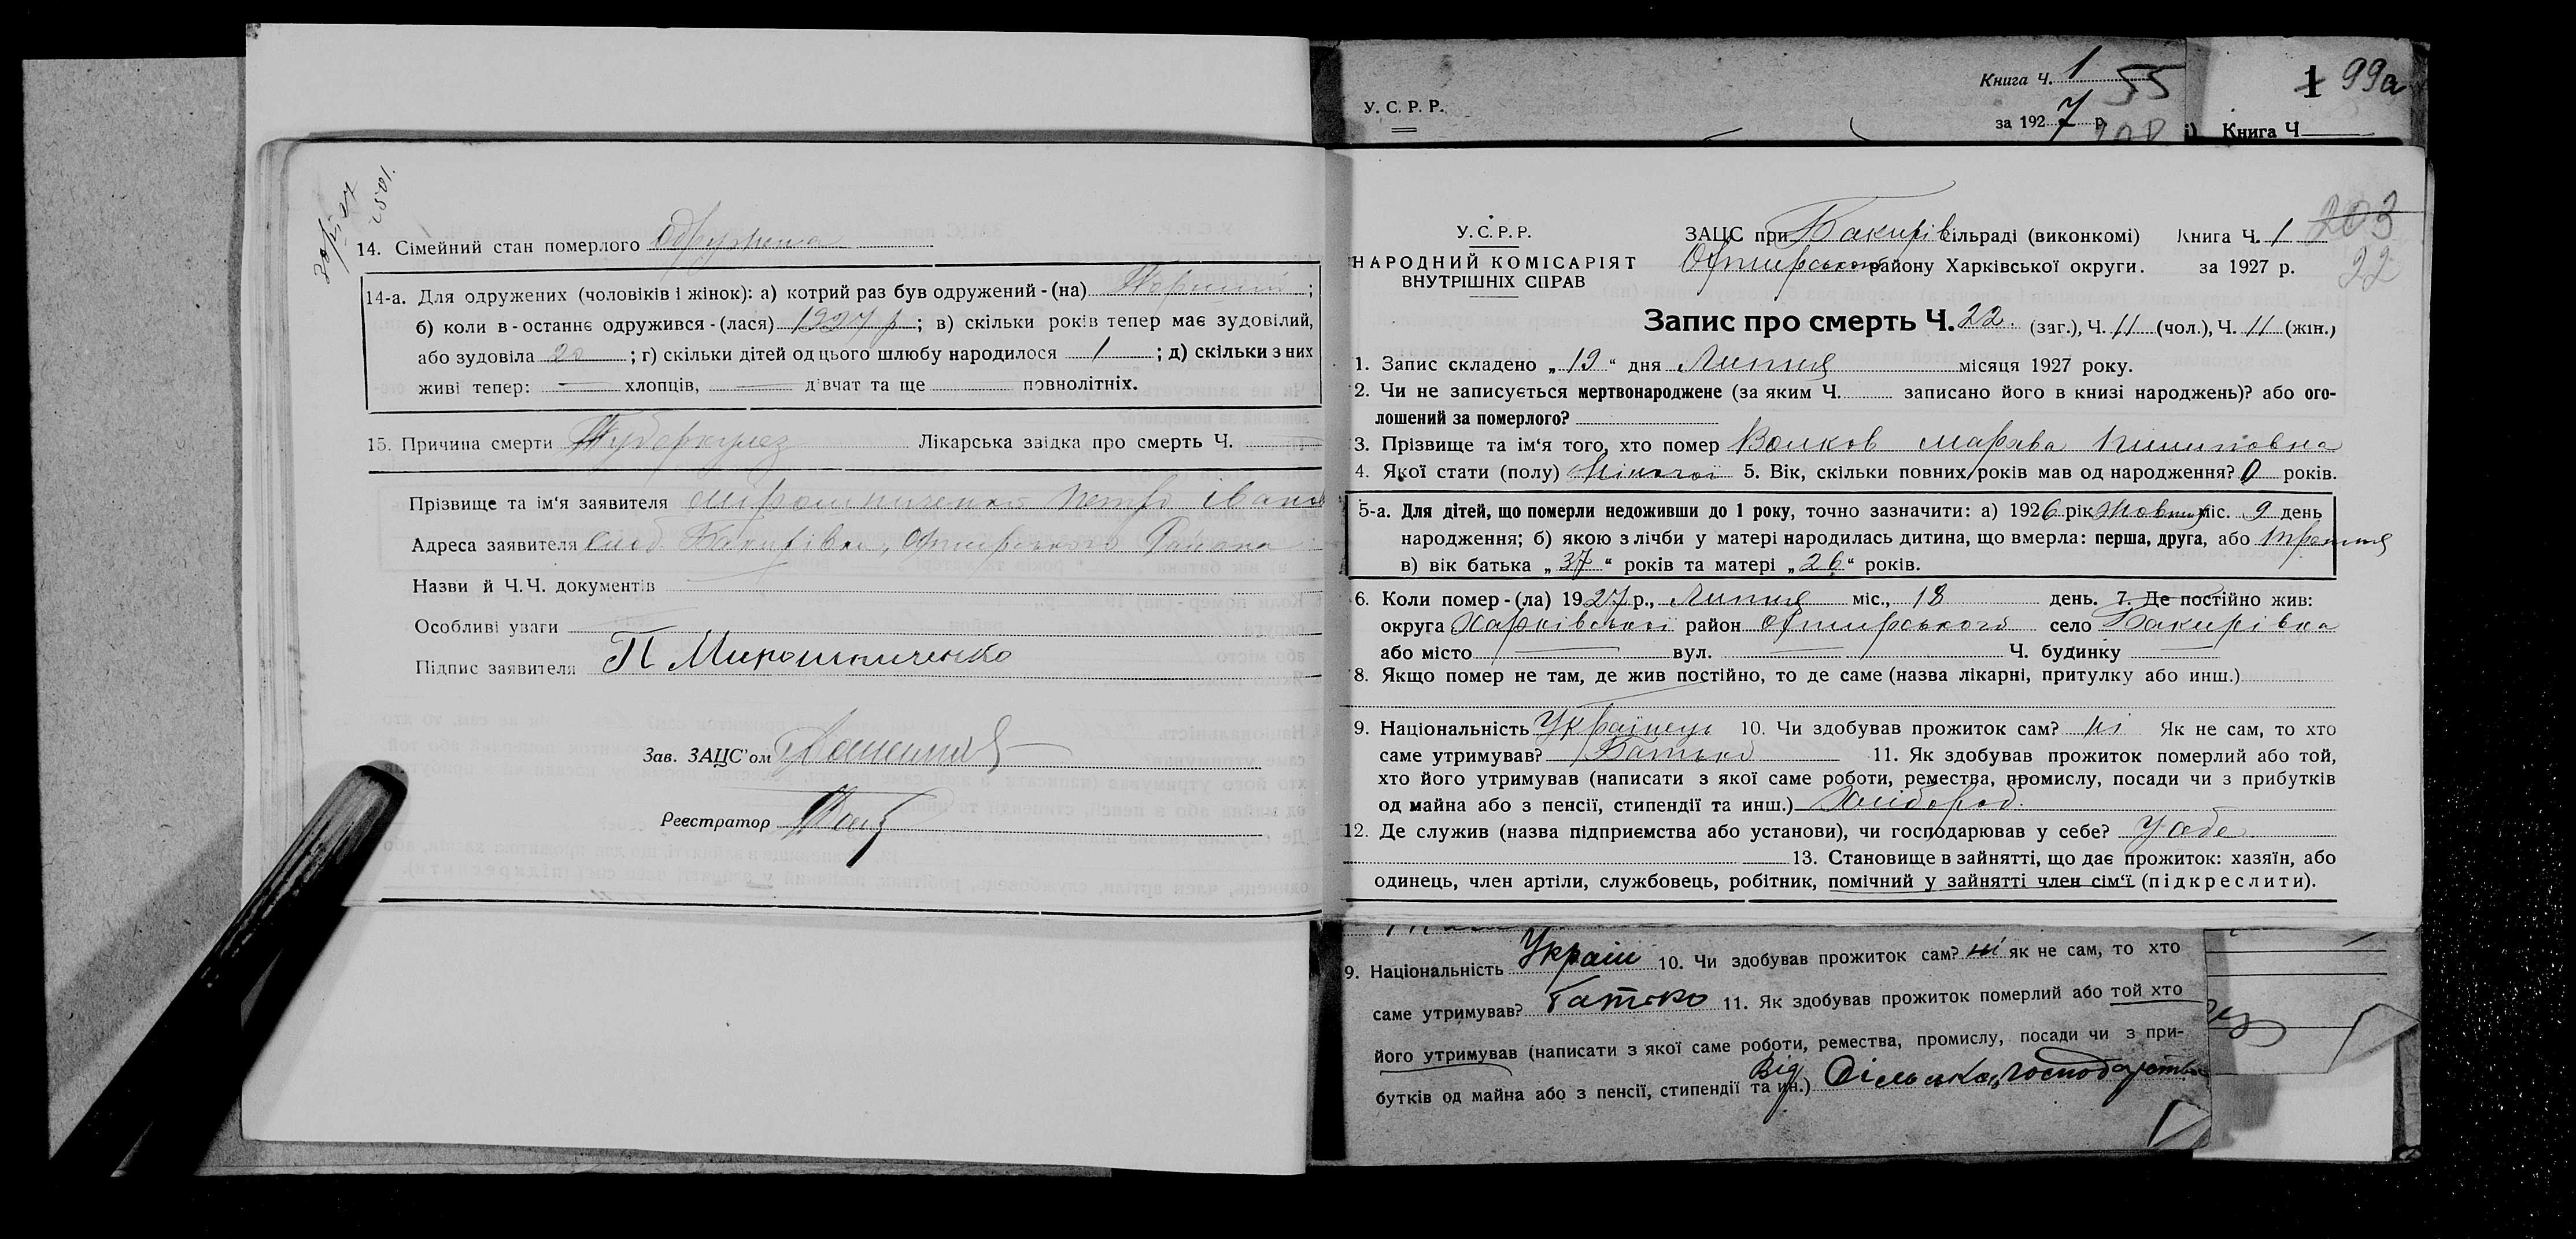 14. Сімейний стан померлого Одружена
14-а. Для одружених (чоловіків і жінок): а) котрий раз був одружений - (на) Перший ;
б) коли в - останнє одружився - (лася) 1927 р ; в) скільки років тепер має зудовілий,
або зудовіла 20 ; г) скільки дітей од цього шлюбу народилося 1 ; д) скільки з них
живі тепер: — хлопців, — дівчат та ще повнолітніх.
15. Причина смерти Туберкулез Лікарська звідка про смерть Ч. —
Прізвище та ім'я заявителя Мирошниченко Петро Іванов
Адреса заявителя Слод. Бакирівка, Охтирського Района
Назви й Ч. Ч. документів
Особливі уваги
Підпис заявителя П Мирошниченко
Зав. ЗАЦС'ом
Реєстратор
У. С. Р. Р.
Книга Ч. 1 55
за 1927 р.
1 99а
Книга Ч
У. С. Р. Р.
НАРОДНИЙ КОМІСАРІЯТ
ВНУТРІШНІХ СПРАВ
ЗАЦС при Бакирів сільраді (виконкомі) Книга Ч. 1 203
Охтирського району Харківської округи. за 1927 р. 22
Запис про смерть Ч. 22. (заг.), Ч. 11 (чол.), Ч. 11 (жін.)
1. Запис складено „ 19 " дня Липня місяця 1927 року.
2. Чи не записується мертвонароджене (за яким Ч. записано його в книзі народжень)? або ого-
лошений за померлого?
3. Прізвище та ім'я того, хто помер Волков Марфа Пилиповна
4. Якої стати (полу) Жіночої 5. Вік, скільки повних років мав од народження? 0 років.
5-а. Для дітей, що померли недоживши до 1 року, точно зазначити: а) 1926 рік Жовтня міс. 9 день
народження; б) якою з лічби у матері народилась дитина, що вмерла: перша, друга, або третя
в) вік батька „ 37 " років та матері „ 26 " років.
6. Коли помер - (ла) 1927 р., Липня міс., 18 день. 7. Де постійно жив:
округа Харківської район Охтирського село Бакирівка
або місто — вул. — Ч. будинку —
8. Якщо помер не там, де жив постійно, то де саме (назва лікарні, притулку або инш.)
9. Національність Українець 10. Чи здобував прожиток сам? ні Як не сам, то хто
саме утримував? Батько 11. Як здобував прожиток померлий або той,
хто його утримував (написати з якої саме роботи, ремества, промислу, посади чи з прибутків
од майна або з пенсії, стипендії та инш.) Хлібороб.
12. Де служив (назва підприємства або установи), чи господарював у себе? У себе
13. Становище в зайнятті, що дає прожиток: хазяїн, або
одинець, член артіли, службовець, робітник, помічний у зайнятті член сім'ї (підкреслити).
9. Національність Україн 10. Чи здобував прожиток сам? ні як не сам, то хто
саме утримував? Батько 11. Як здобував прожиток померлий або той хто
його утримував (написати з якої саме роботи, ремества, промислу, посади чи з при-
бутків од майна або з пенсії, стипендії та ин.) Від Сільськ. господарства